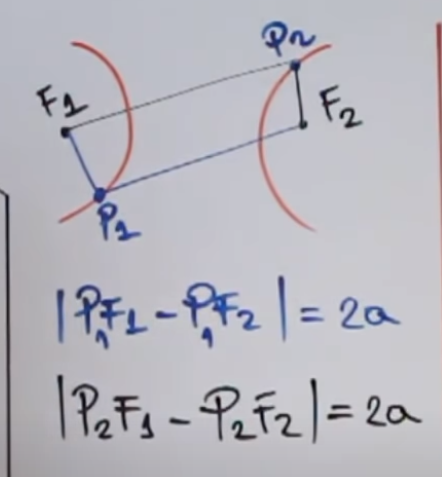 P2
F1
F2
P1
|P1F1 - P1F2| = 2a
|P2F1 - P2F2| = 2a